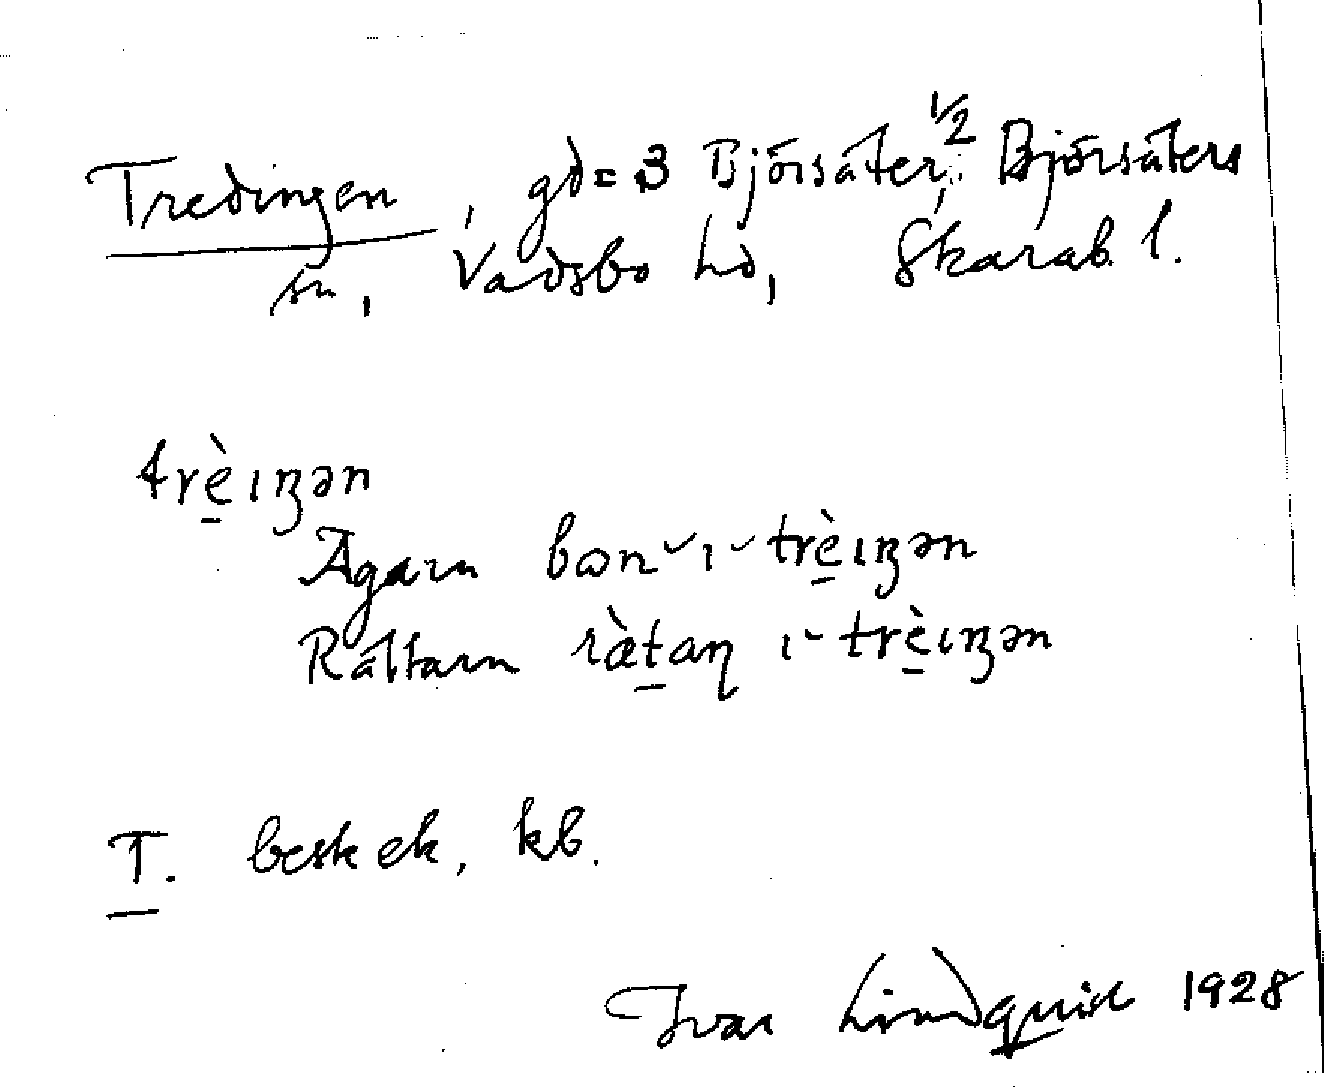 Tredingen, gd = 3 Björsäter, 1/2 Björsäters
sn, Vadsbo hd, Skarab. l.
trè̱ıŋən
Ägarn bɷn ı trè̱ıŋən
Rättarn ràṯaɳ ı trè̱ıŋən
T. besk ek, kb.
Ivar Lindquist 1928